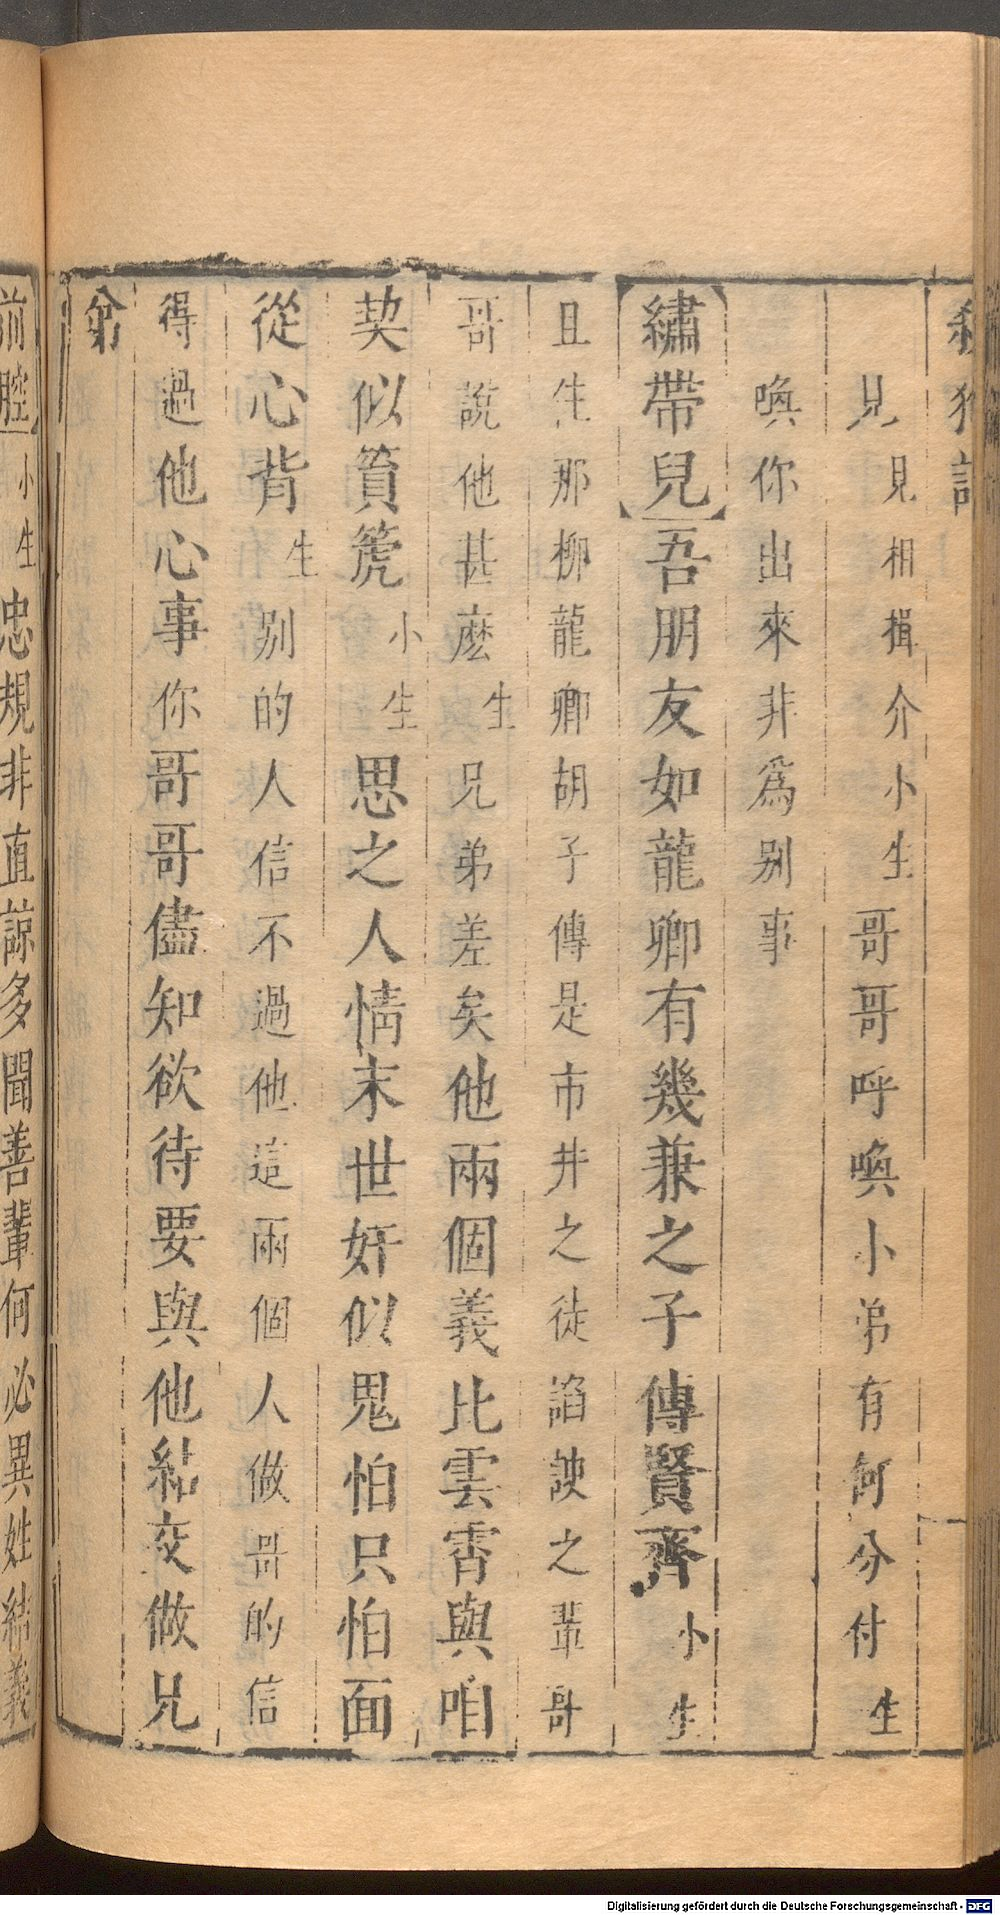 殺狗記
見見相揖介小生哥哥呼喚小弟有何分付生
喚你出來非為別事
【繡帶兒】吾朋友如龍卿有幾兼之子傳賢齊小生
且生那柳龍卿胡子傳是市井之徒諂諛之輩哥
哥說他甚麽生兄弟差矣他兩個義比雲霄與咱
契似篔箎小生思之人情末世奸似鬼怕只怕面
從心背生别的人信不過他這兩個人做哥的信
得過他心事你哥哥儘知欲待要與他結交做兄
弟
前腔】小生忠規非直諒多聞善輩何必異姓結義
Digitalisierung gefördert durch die Deutsche Forschungsgemeinschaft - DFG